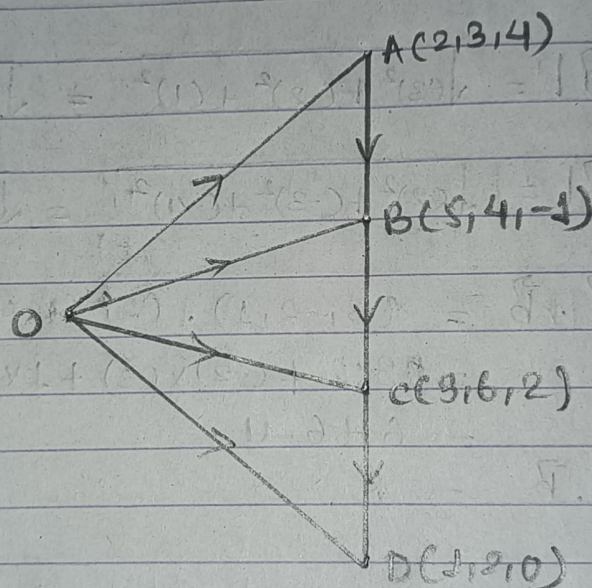 A(2,3,4)
B(5,4,-1)
O
C(3,6,2)
D(1,2,0)